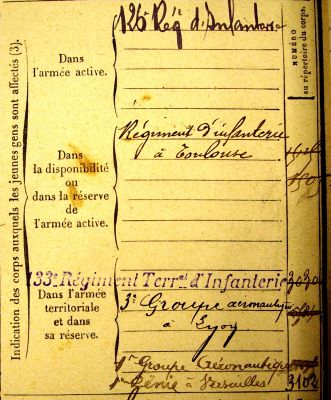 Indication des corps auxquels les jeunes gens sont affectés (3).
NUMÉRO
au répertoire du corps.
126 Rég d'Infanterie
Dans
l'armée active.
Régiment d'infanterie
à Toulouse
Dans
la disponibilité
ou
dans la réserve
de
l'armée active.
33e Régiment Terral d'Infanterie
Dans l'armée
territoriale
et dans
sa réserve.
3e Groupe aeronautique
à Lyon
1er Groupe Aéronautique
Génie à Versailles 3102